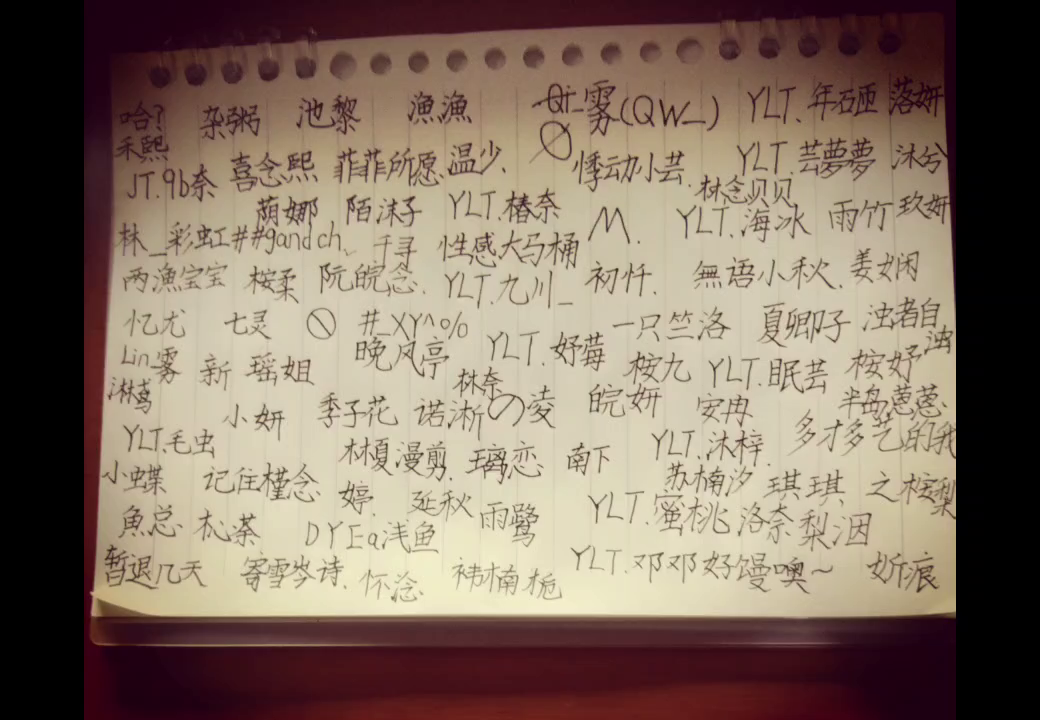 哈? 杂粥 池黎 漁漁 Qi_雾(QW_) YLT.年砳砸 落妍
禾熙 喜念熙 菲菲所愿 温少. 悸动小芸. YLT.芸夢夢 沐兮
JT.9b奈 荫娜 陌沫子 YLT.椿奈 林念贝贝 玖妍
林_彩虹##gandch、 千寻 性感大马桶 M. YLT.海冰 雨竹
两漁宝宝 桉柔 阮皖念. YLT.九川_ 初忏. 無語小秋. 姜女闲
忆尤 七灵 #_XY^0% 一只竺洛 夏卿子 浊者自浊
Lin雾 新瑶姐 晚风亭 YLT.妤莓 桉九 YLT.眠芸 桉妤
淋茑 小妍 季子花 林奈 诺淅の凌 皖妍 安冉 半岛葱葱.
YLT.毛虫 林夏漫剪. 璃恋 南下 YLT.沐梓. 多才多艺的我
小蝶 记住槿念. 婷. 延秋 雨鹭 苏楠汐 琪琪. 之桉梨
魚总 杺荼 DYEa浅鱼 YLT.蜜桃 洛奈 梨洇
暂退几天 寄雪岑诗. 怀淰. 祎楠栀 YLT.邓邓好馒噢~ 妡痕